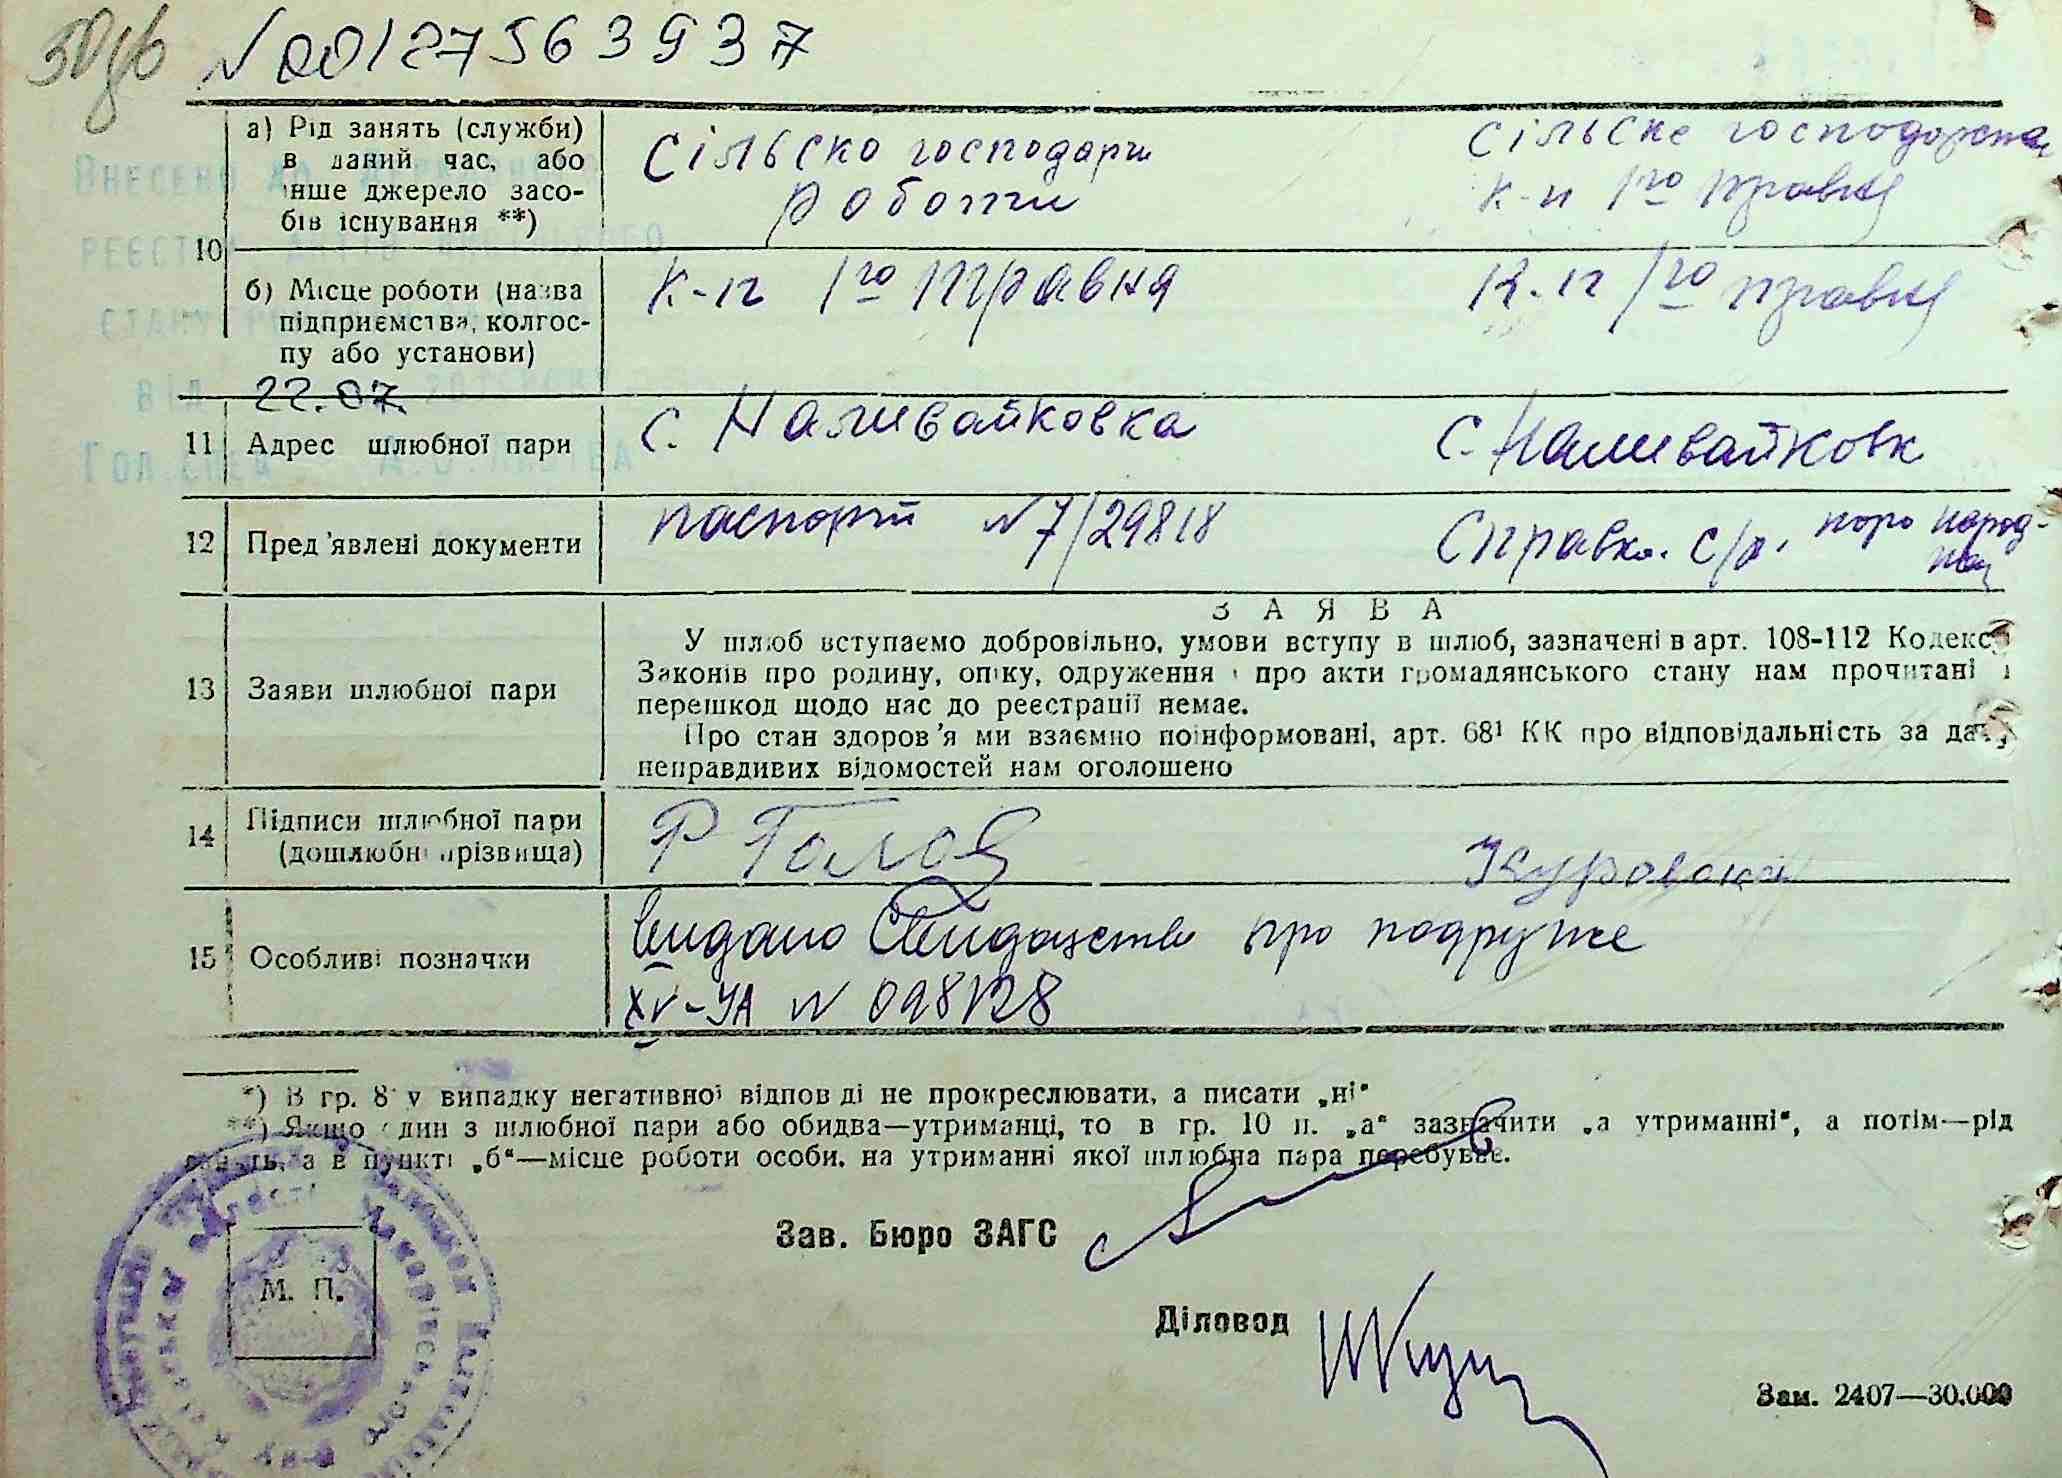 50 зв №00127563937
а) Рід занять (служби) в даний час, або інше джерело засобів існування **)
Сільско господарчи роботи
Сільске господарства к-п 1го травня
10
б) Місце роботи (назва підприємства, колгоспу або установи)
К-п 1го травня
К-п 1го травня
Внесено до Державного
реєстру актів цивільного
стану
від 22.07.
11 Адрес шлюбної пари
с. Наливайковка
с. Наливайковк
12 Пред'явлені документи
паспорт №7/29818
Справка с/р. про народ-
13 Заяви шлюбної пари
ЗАЯВА
У шлюб вступаємо добровільно, умови вступу в шлюб, зазначені в арт. 108-112 Кодексу
Законів про родину, опіку, одруження і про акти громадянського стану нам прочитані і
перешкод щодо нас до реєстрації немає.
Про стан здоров'я ми взаємно поінформовані, арт. 68¹ КК про відповідальність за дачу
неправдивих відомостей нам оголошено
14 Підписи шлюбної пари (дошлюбні прізвища)
15 Особливі позначки
видано Свидоцтво про подруже
XV-УА № 098128
*) В гр. 8 у випадку негативної відповіді не прокреслювати, а писати „ні“
**) Якщо один з шлюбної пари або обидва—утриманці, то в гр. 10 п. „а“ зазначити „а утриманні“, а потім—рід
занять, а в пункті „б“—місце роботи особи, на утриманні якої шлюбна пара перебуває.
Зав. Бюро ЗАГС
М. П.
Діловод
Зам. 2407—30.000